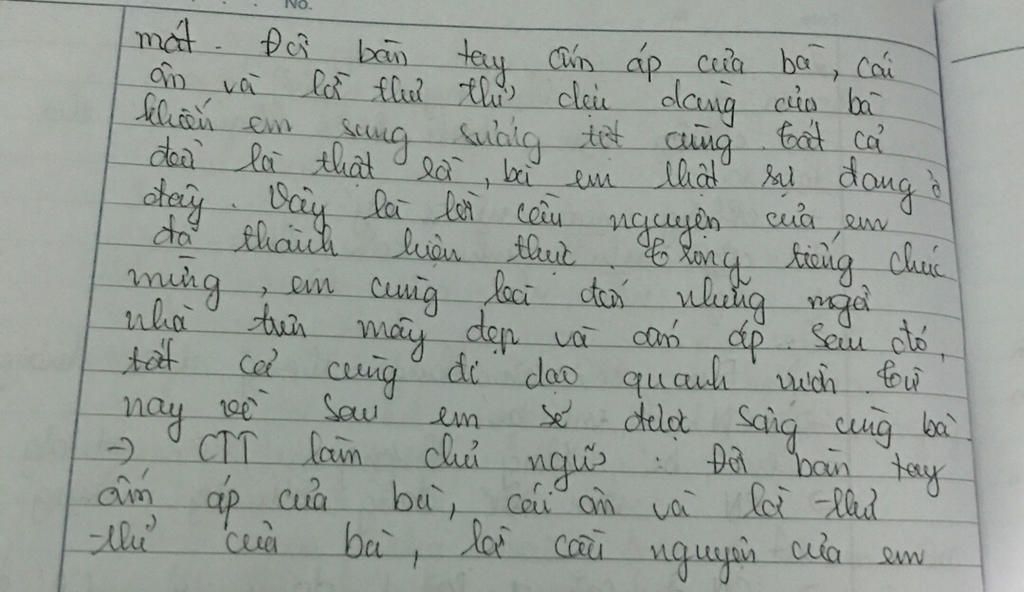 No.
mát. Đôi bàn tay ấm áp của bà, cái
ôm và lời thủ thỉ dịu dàng của bà
khiến em sung sướng tột cùng. tất cả
đều là thật rồi, bà em thật sự đang ở
đây. Vậy là lời cầu nguyện của em
đã thành hiện thực. tiếng chúc
mừng, em cùng bà đến những ngôi
nhà trên mây đẹp và ấm áp sau đó,
tất cả cùng đi dạo quanh vườn từ
nay về sau em sẽ được sống cùng bà
→ CTT làm chủ ngữ: Đôi bàn tay
ấm áp của bà, cái ôm và lời thủ
thỉ của bà, lời cầu nguyện của em